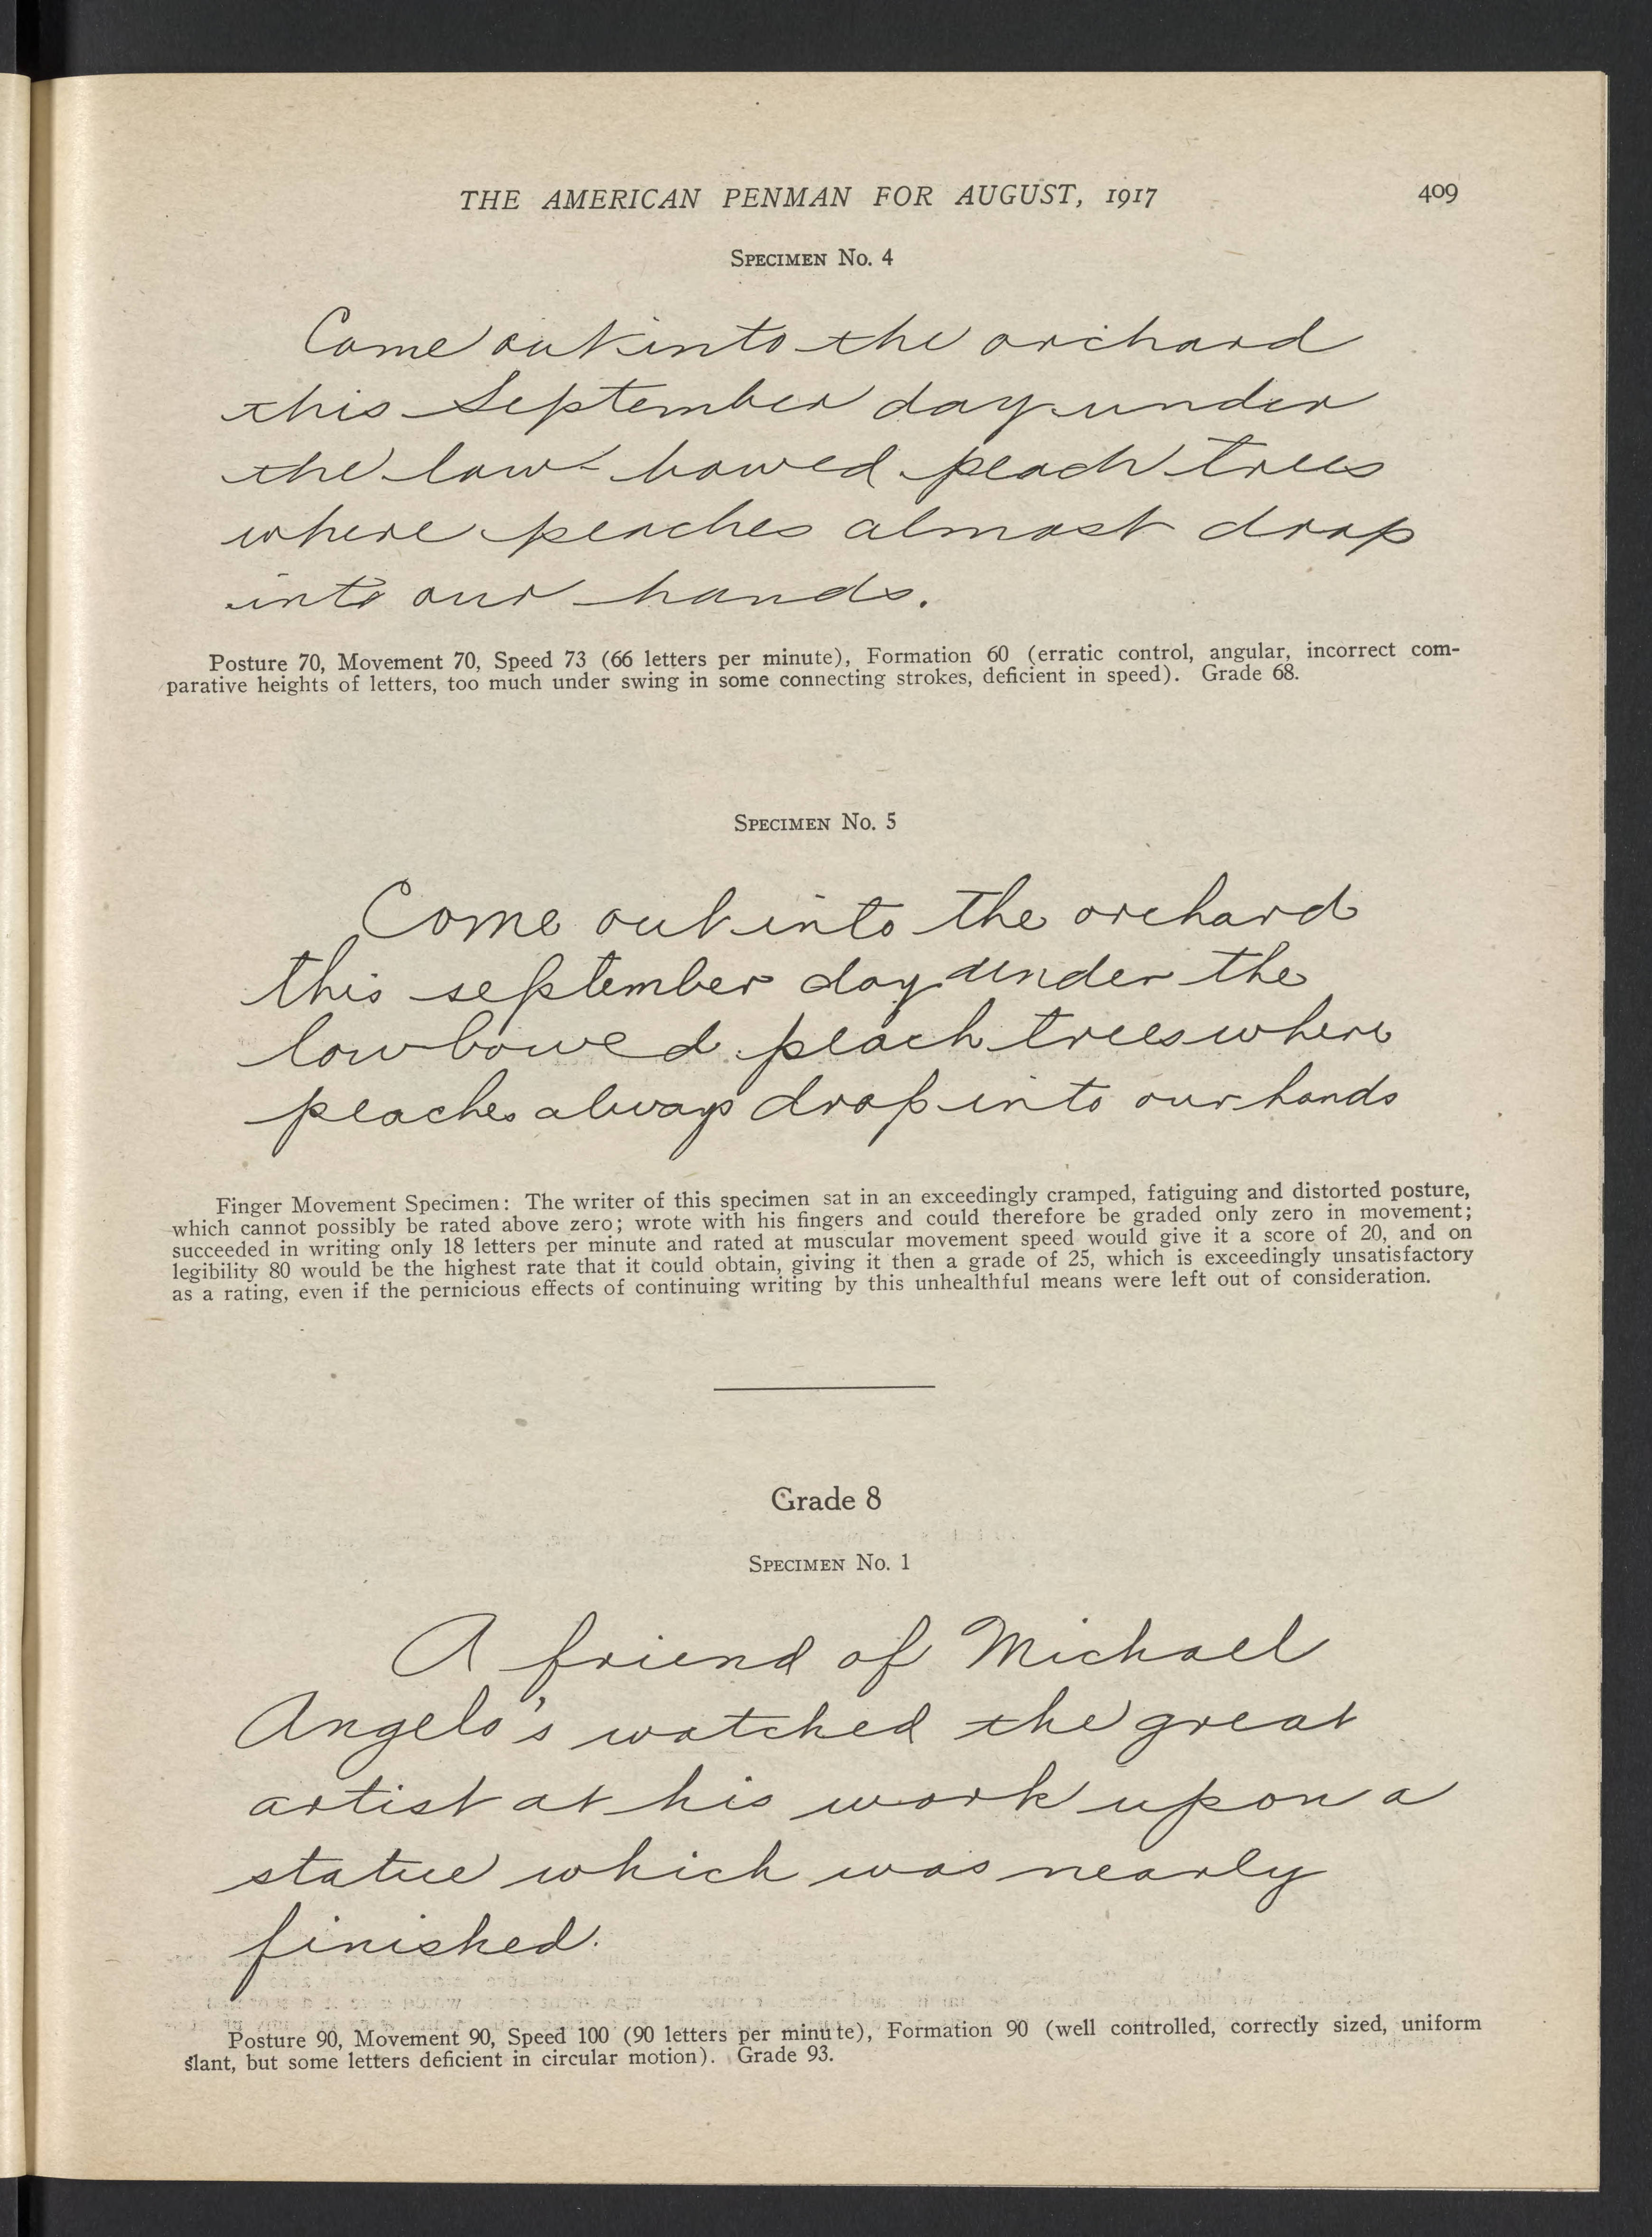 THE AMERICAN PENMAN FOR AUGUST, 1917 409
SPECIMEN NO. 4
Come out into the orchard
this September day under
the low-bowed peach trees
where peaches almost drop
into our hands.
Posture 70, Movement 70, Speed 73 (66 letters per minute), Formation 60 (erratic control, angular, incorrect com-
parative heights of letters, too much under swing in some connecting strokes, deficient in speed). Grade 68.
SPECIMEN NO. 5
Come out into the orchard
this september day under the
low bowed peach trees where
peaches always drop into our hands
Finger Movement Specimen: The writer of this specimen sat in an exceedingly cramped, fatiguing and distorted posture,
which cannot possibly be rated above zero; wrote with his fingers and could therefore be graded only zero in movement;
succeeded in writing only 18 letters per minute and rated at muscular movement speed would give it a score of 20, and on
legibility 80 would be the highest rate that it could obtain, giving it then a grade of 25, which is exceedingly unsatisfactory
as a rating, even if the pernicious effects of continuing writing by this unhealthful means were left out of consideration.
Grade 8
SPECIMEN NO. 1
A friend of Michael
Angelo's watched the great
artist at his work upon a
statue which was nearly
finished.
Posture 90, Movement 90, Speed 100 (90 letters per minute), Formation 90 (well controlled, correctly sized, uniform
slant, but some letters deficient in circular motion). Grade 93.